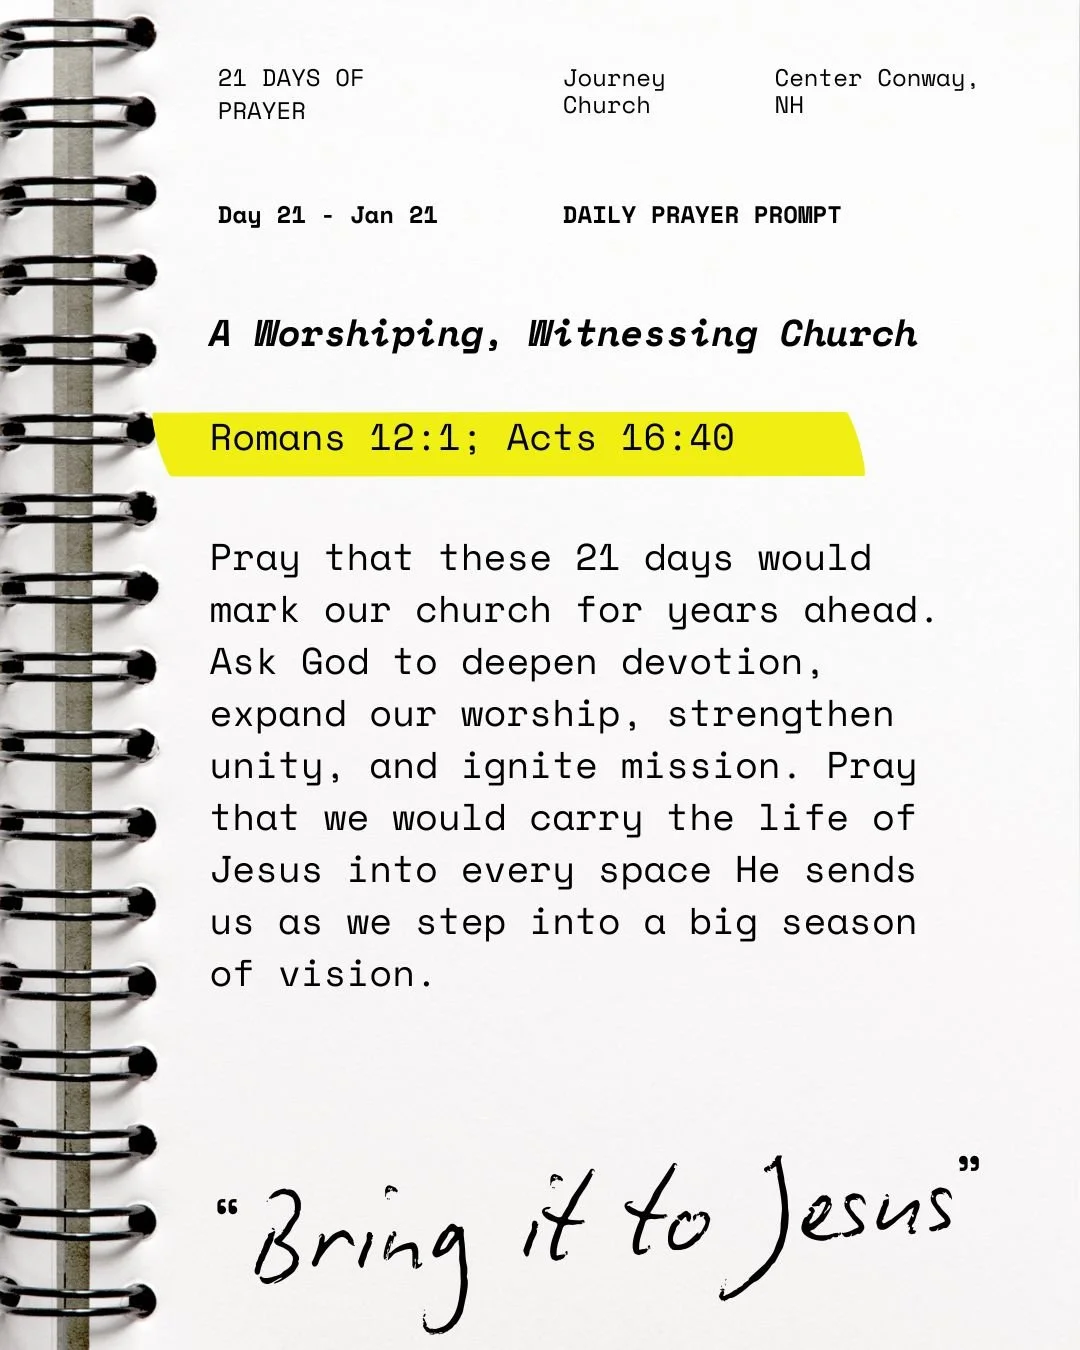 21 DAYS OF
PRAYER
Journey
Church
Center Conway,
NH
Day 21 - Jan 21
DAILY PRAYER PROMPT
A Worshiping, Witnessing Church
Romans 12:1; Acts 16:40
Pray that these 21 days would
mark our church for years ahead.
Ask God to deepen devotion,
expand our worship, strengthen
unity, and ignite mission. Pray
that we would carry the life of
Jesus into every space He sends
us as we step into a big season
of vision.
“Bring it to Jesus”